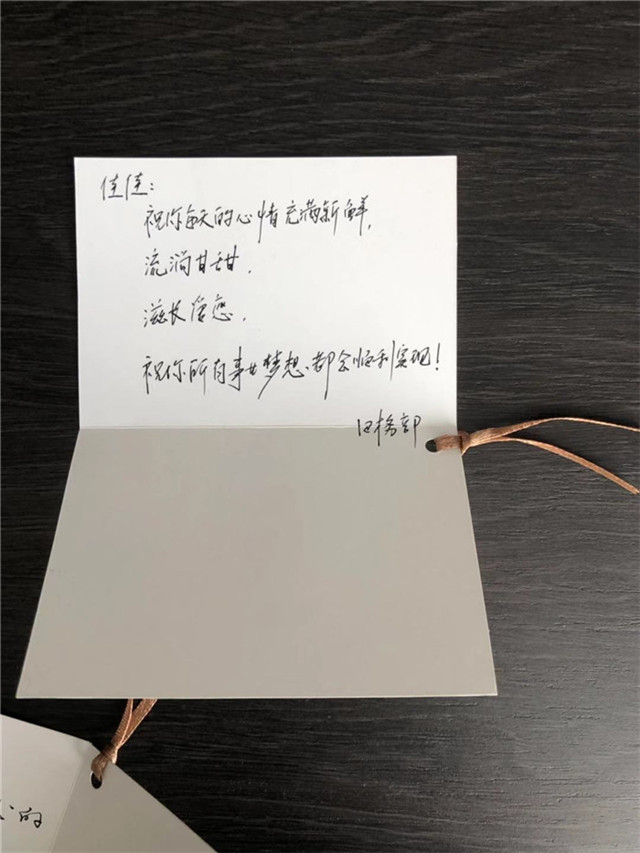 佳佳：
祝你每天的心情充满新鲜，
流淌甘甜，
滋长惬意，
祝你所有事业梦想都会顺利实现！
的